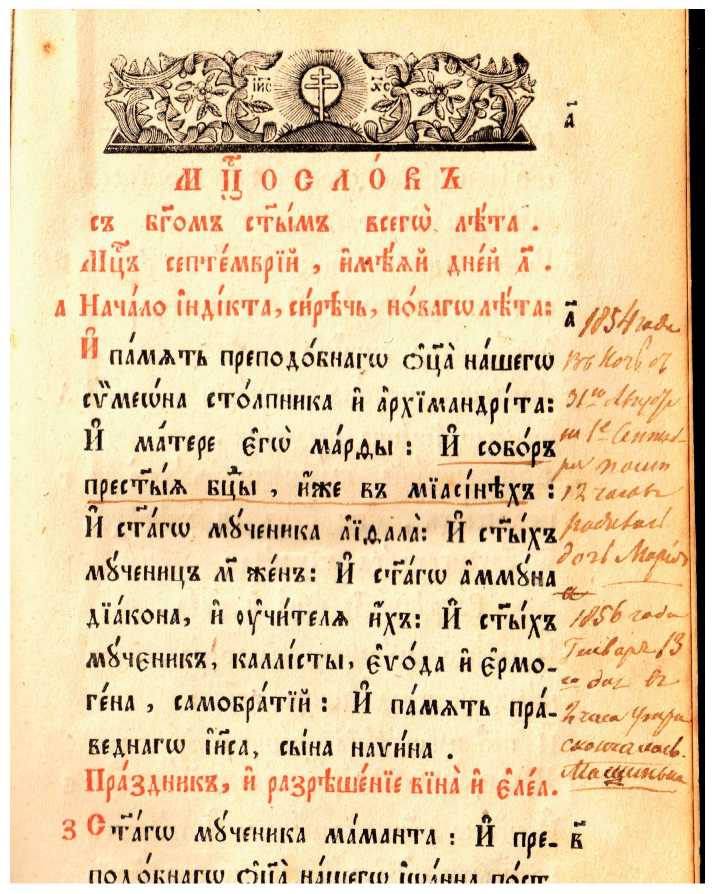 І҆И҃С Х҃С
а҃
МЦ҃ОСЛО́ВЪ
съ бг҃омъ ст҃ы́мъ всегѡ̀ лѣ́та .
Мц҃ъ септе́мврїй , и҆мѣ́ѧй дне́й л҃ .
а Нача́ло і҆нді́кта, си́рѣчь, но́вагѡ лѣ́та: а҃
И҆ па́мѧть преподо́бнагѡ ѻ҆ц҃а̀ на́шегѡ
сѷмеѡ́на сто́лпника и҆ а҆рхїмандрі́та:
И҆ ма́тере є҆гѡ̀ ма́рѳы : И҆ собо́ръ
прест҃ы́ѧ бц҃ы , и҆́же въ мїасі́нѣхъ :
И҆ ст҃а́гѡ мꙋ́ченика а҆їѳала̀: И҆ ст҃ы́хъ
мꙋ́чениць м҃ же́нъ: И҆ ст҃а́гѡ а҆ммꙋ́на
дїа́кона, и҆ ᲂу҆чи́телѧ и҆́хъ: И҆ ст҃ы́хъ
мꙋ́ченикъ, каллі́сты, є҆ѵо́да и҆ є҆рмо-
ге́на , самобра́тїй : И҆ па́мѧть пра́-
веднагѡ і҆и҃са, сы́на наѵи́на .
Пра́здникъ, и҆ разрѣше́нїе вїна̀ и҆ є҆ле́ѧ.
З Ст҃а́гѡ мꙋ́ченика ма́манта : И҆ пре- в҃
подо́бнагѡ ѻ҆ц҃а̀ на́шегѡ і҆ѡа́нна по́ст
1854 года
Въ Ночь съ
31го Августа
на 1е Сентяб-
ря
12 часовъ
дочь Марія
1856 года
Генваря 13
го дня въ
2 часа утра
скончалась
Машинька